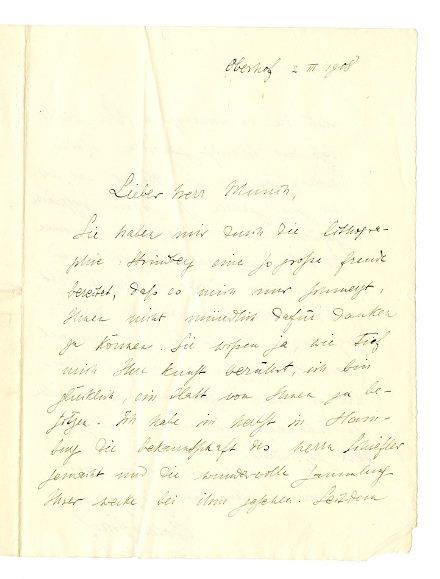 Oberhof 2 III 1908
Lieber Herr Munch,
Sie haben mir durch die Lithogra-
phie Strindberg eine so große Freude
bereitet, daß es mich nur schmerzt,
Ihnen nicht mündlich dafür danken
zu können. Sie wissen ja, wie tief
mich Ihre Kunst berührt, ich bin
glücklich, ein Blatt von Ihnen zu be-
sitzen. Ich habe im Herbst in Ham-
burg die Bekanntschaft des Herrn Schiefler
gemacht und die wundervolle Sammlung
Ihrer Werke bei ihm gesehen. Seitdem